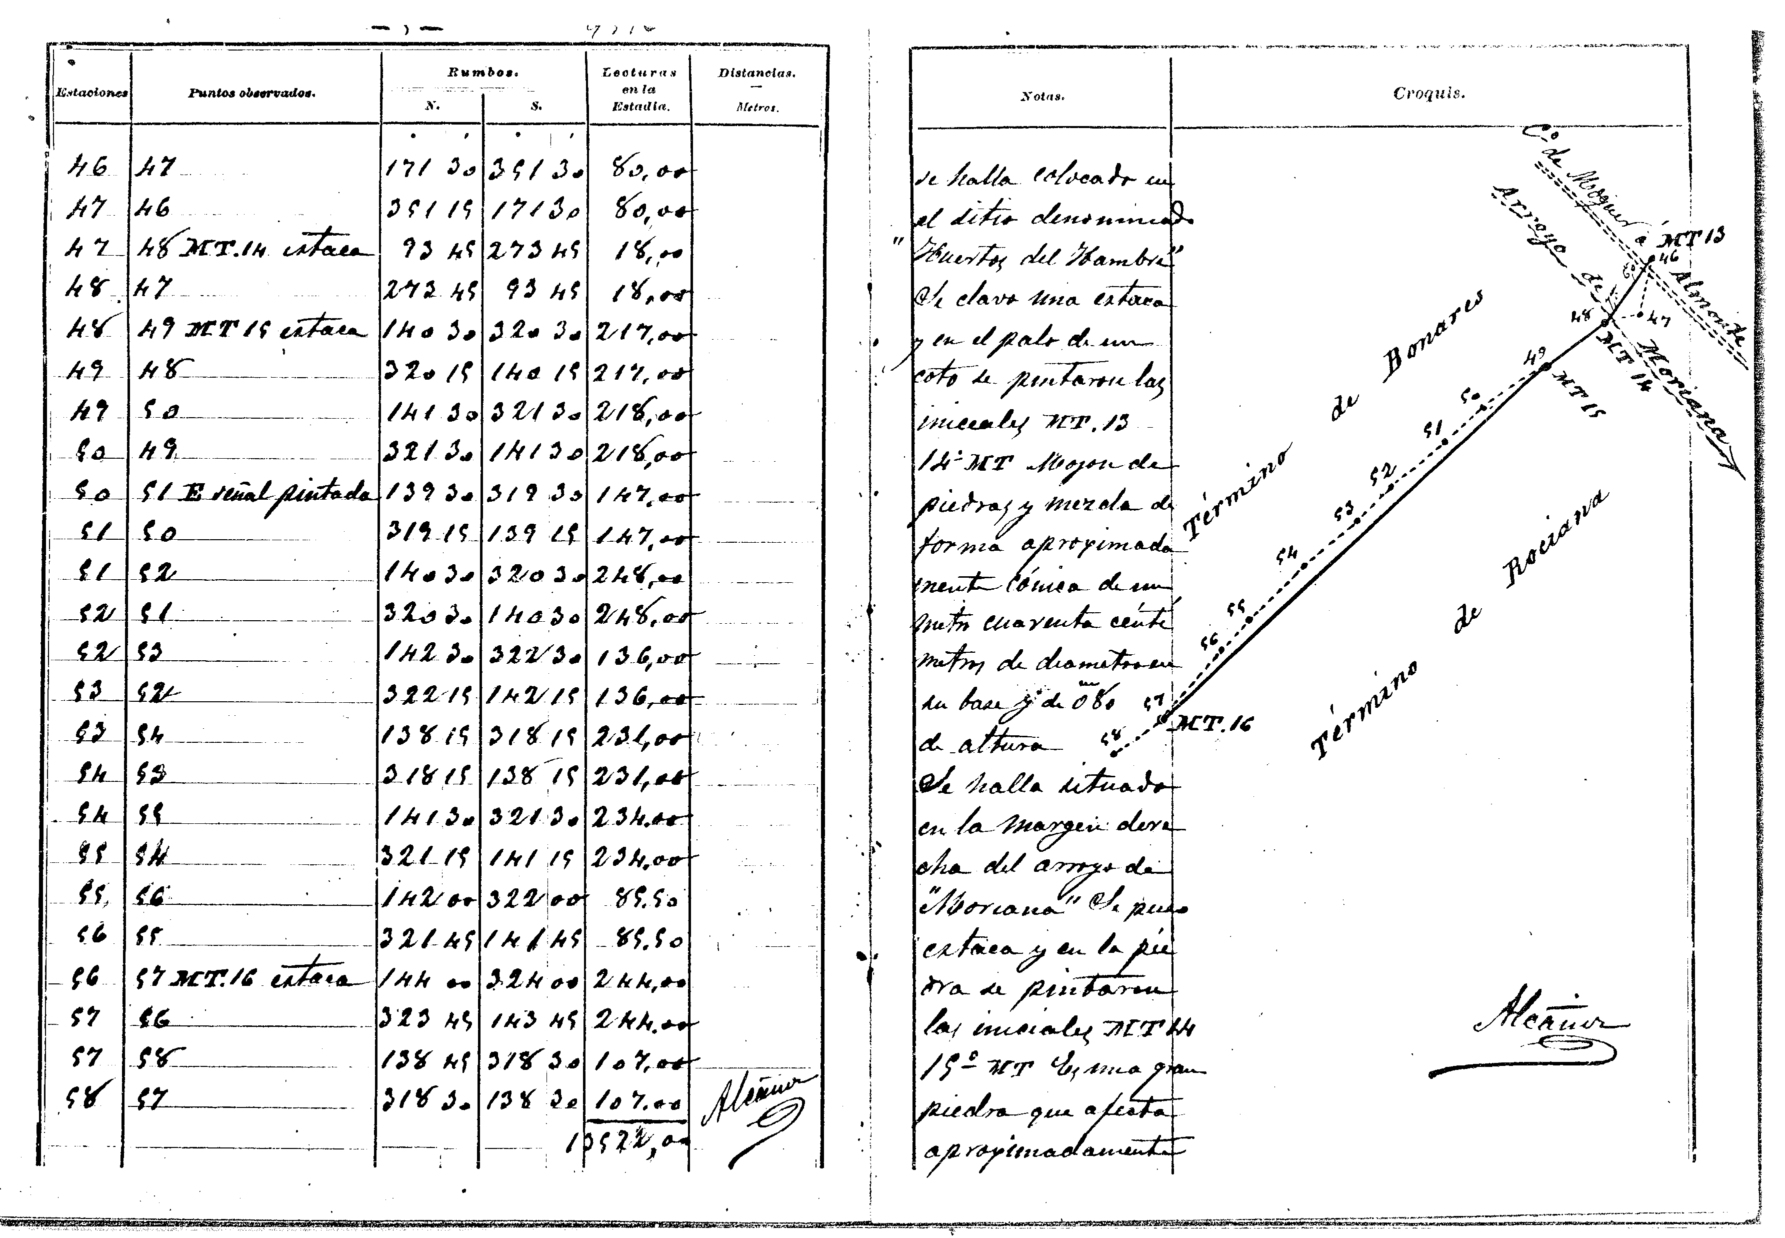 Estaciones Puntos observados. Rumbos. N. S. Lecturas en la Estadia. Distancias. Metros.
46 47 171 30 351 30 80,00
47 46 351 15 171 30 80,00
47 48 MT.14 estaca 93 45 273 45 18,00
48 47 273 45 93 45 18,00
48 49 MT 15 estaca 140 30 320 30 217,00
49 48 320 15 140 15 217,00
49 50 141 30 321 30 218,00
50 49 321 30 141 30 218,00
50 51 E señal pintada 139 30 319 30 147,00
51 50 319 15 139 15 147,00
51 52 140 30 320 30 248,00
52 51 320 30 140 30 248,00
52 53 142 30 322 30 136,00
53 52 322 15 142 15 136,00
53 54 138 15 318 15 231,00
54 53 318 15 138 15 231,00
54 55 141 30 321 30 234,00
55 54 321 15 141 15 234,00
55 56 142 00 322 00 85,50
56 55 321 45 141 45 85,50
56 57 MT.16 estaca 144 00 324 00 244,00
57 56 323 45 143 45 244,00
57 58 138 45 318 30 107,00
58 57 318 30 138 30 107,00
13522,00
Alcañiz
Notas.
se halla colocado en
el sitio denominado
"Huertos del Hambre"
Se clavo una estaca
y en el palo de un
coto se pintaron las
iniciales MT.13
14º MT Mojon de
piedras y mezcla de
forma aproximada
mente cónica de un
metro cuarenta centí
metros de diametro en
su base y de 0m80
de altura
Se halla situado
en la margen dere
cha del arroyo de
"Moriana" Se puso
estaca y en la pie
dra se pintaron
las iniciales MT 14
15º MT Es una gran
piedra que afecta
aproximadamente
Croquis.
Cº de Moguer á Almonte
Arroyo de Moriana
MT 13
46
47
48
MT 14
49
MT 15
50
51
52
53
54
55
56
57
MT.16
58
Término de Bonares
Término de Rociana
Alcañiz